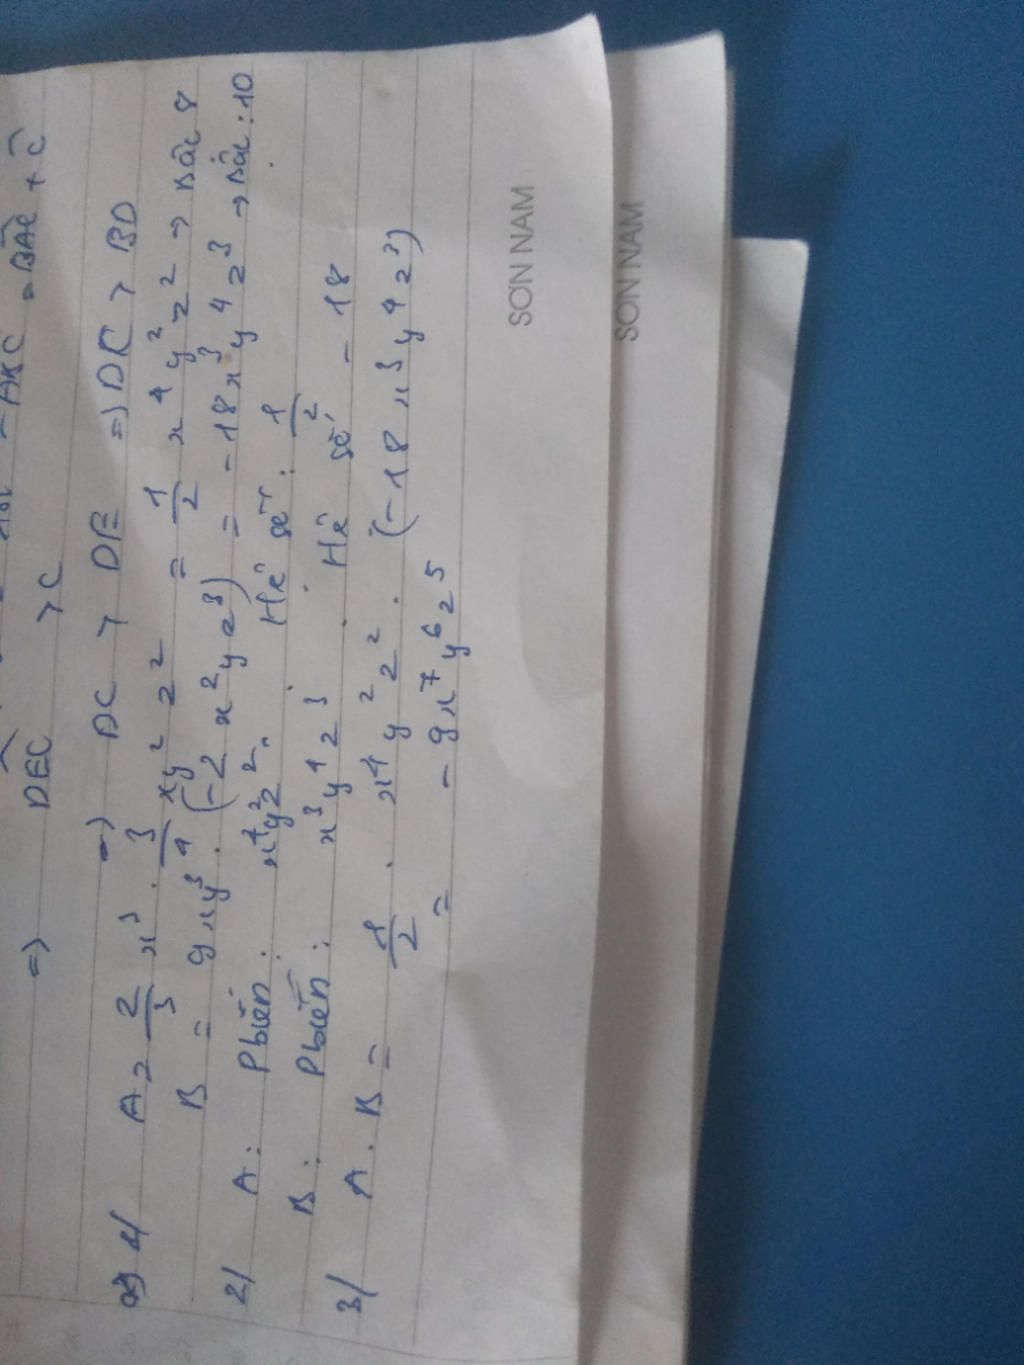 = BAC + C
=> DEC > C
=> DC > DE => DC > BD
1/ A = 2/3 x³ . 3/4 xy² z² = 1/2 x⁴ y² z² → Bậc 8
B = 9xy³ . (-2 x² y z³) = -18x³ y⁴ z³ → Bậc : 10
2/ A : Pbiến : x⁴y²z². Hệ số : 1/2
B : Pbiến : x³y⁴z³ . Hệ số - 18
3/ A . B = 1/2 . x⁴ y² z² . (-18 x³ y⁴ z³)
= - 9x⁷ y⁶ z⁵
SƠN NAM
SƠN NAM